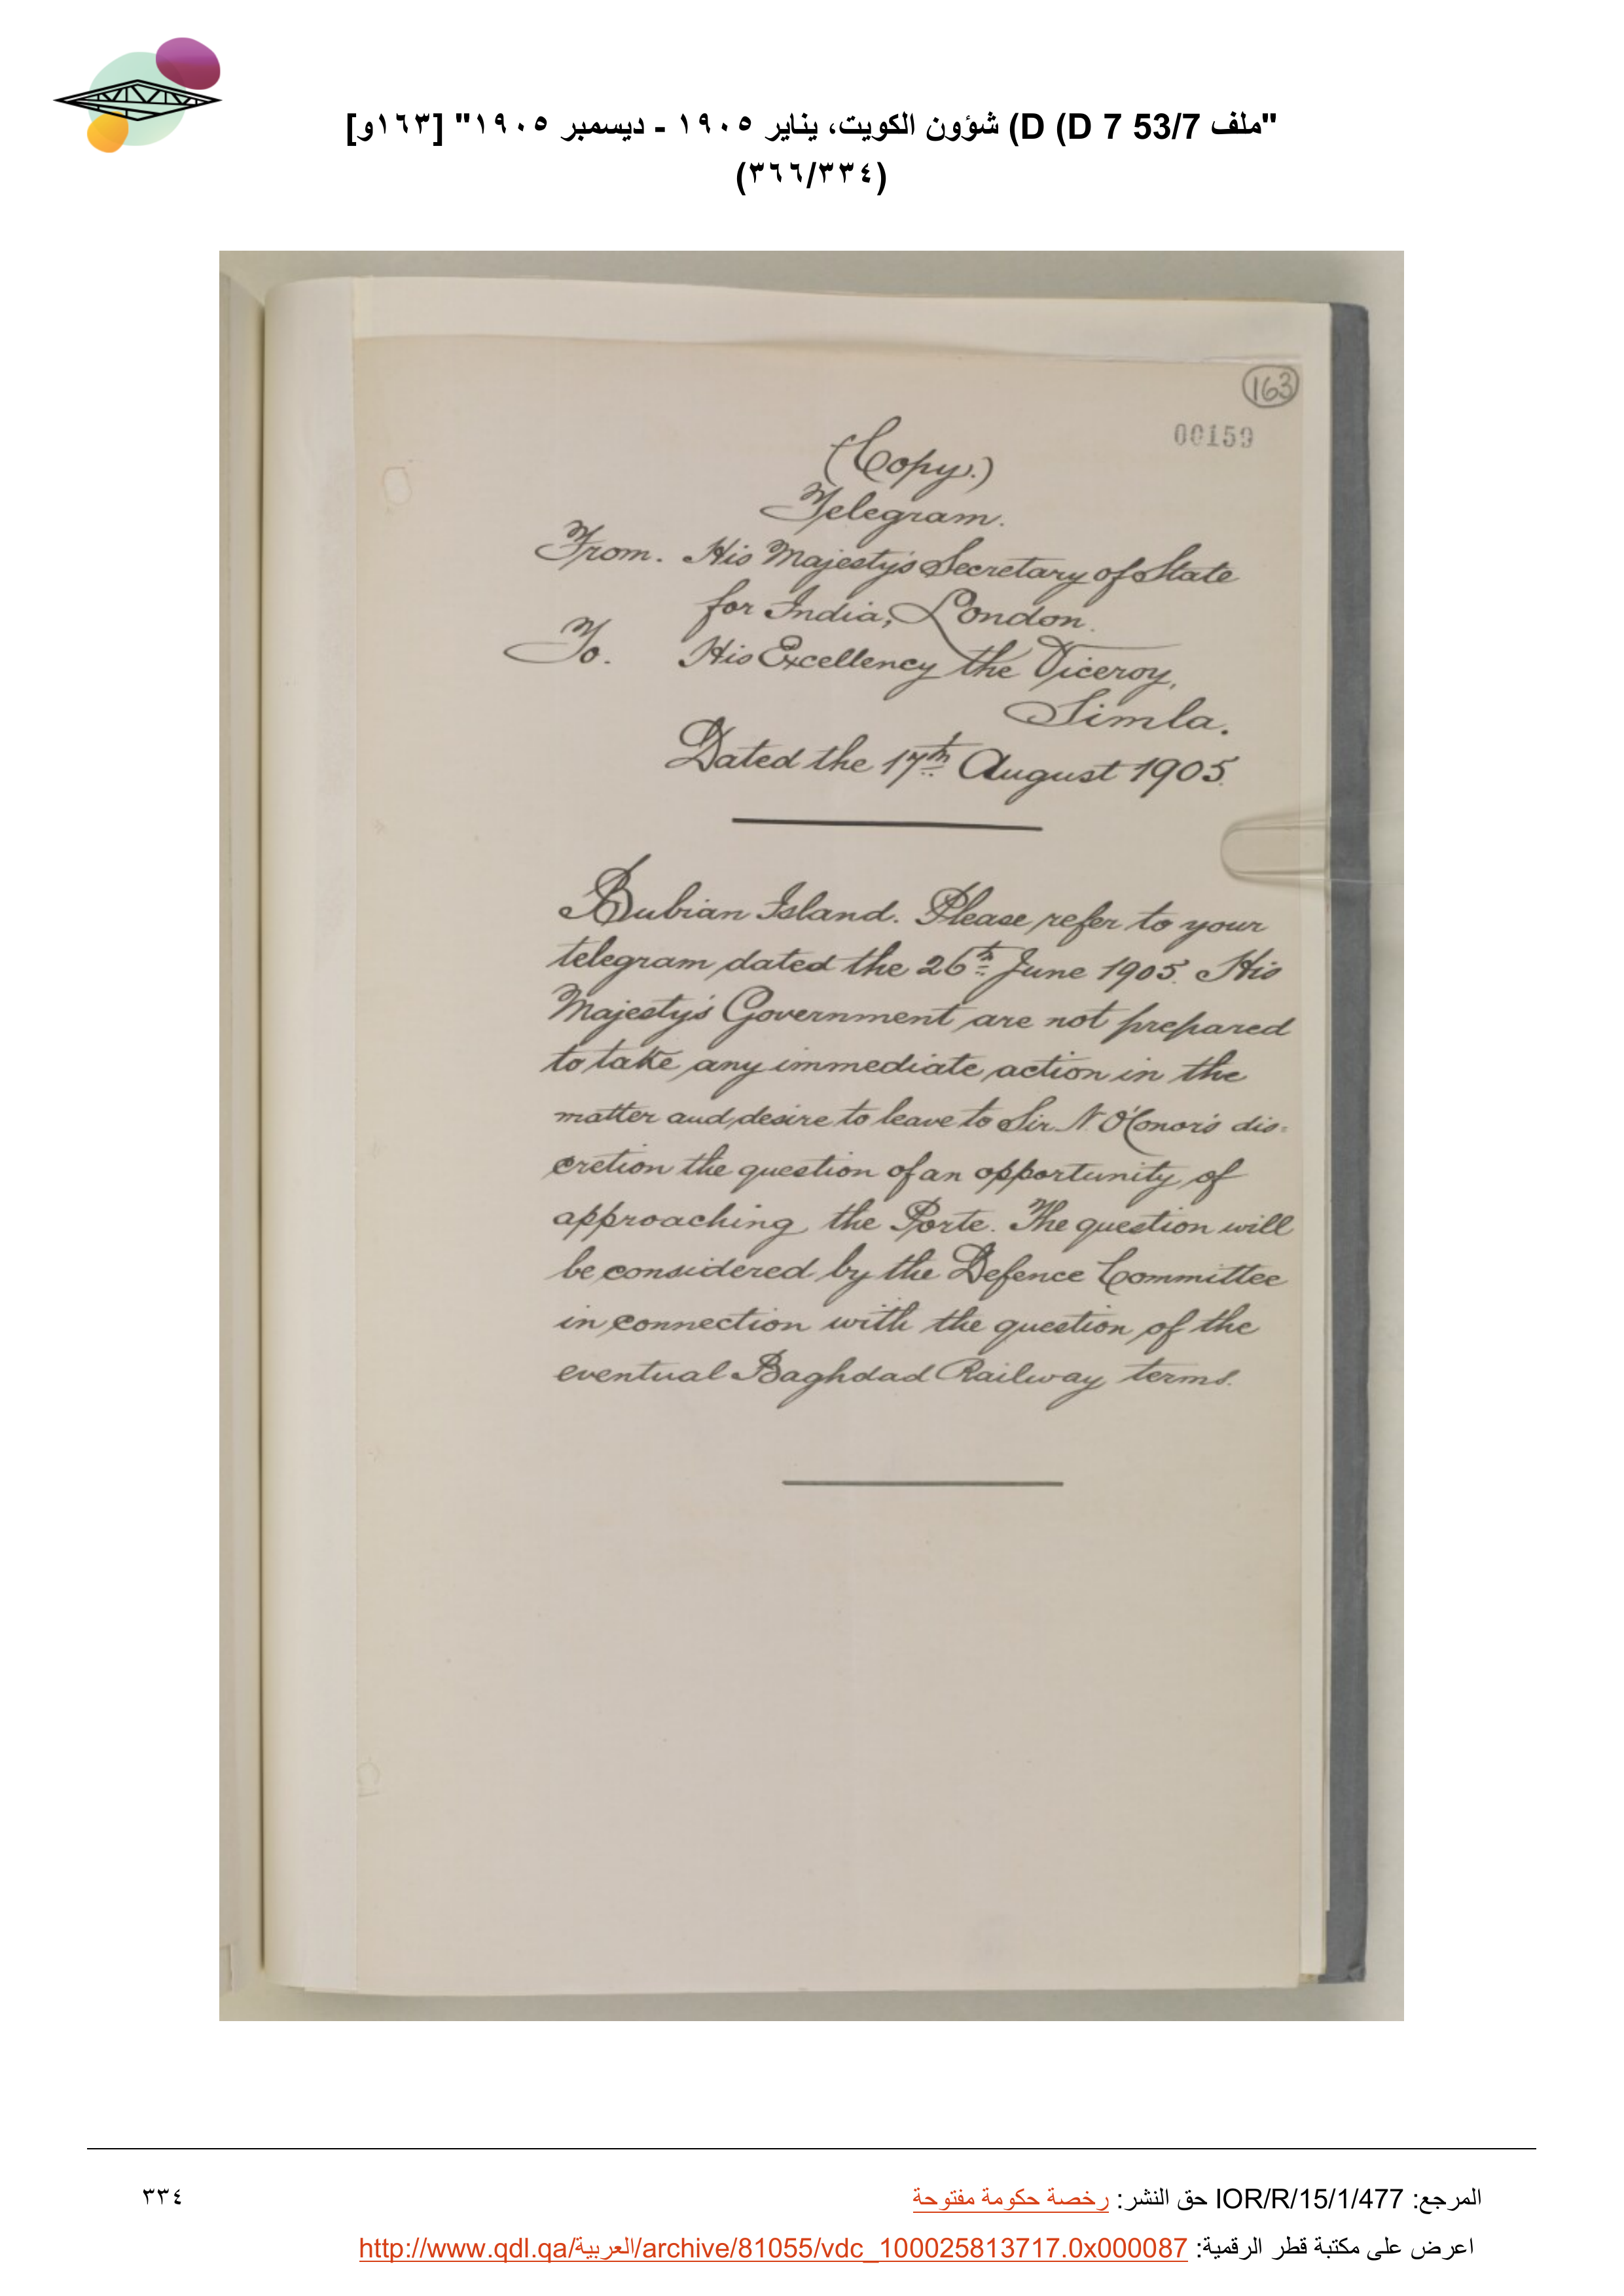 "ملف 53/7 D 7) D) شؤون الكويت، يناير ١٩٠٥ - ديسمبر ١٩٠٥" [١٦٣و]
(٣٦٦/٣٣٤)
163
00159
(Copy.)
Telegram.
From. His Majesty's Secretary of State
for India, London.
To. His Excellency the Viceroy,
Simla.
Dated the 17th August 1905.
Bubian Island. Please refer to your
telegram dated the 26th June 1905. His
Majesty's Government are not prepared
to take any immediate action in the
matter and desire to leave to Sir N. O'Conor's dis=
cretion the question of an opportunity of
approaching the Porte. The question will
be considered by the Defence Committee
in connection with the question of the
eventual Baghdad Railway terms.
المرجع: IOR/R/15/1/477 حق النشر: رخصة حكومة مفتوحة
٣٣٤
اعرض على مكتبة قطر الرقمية: http://www.qdl.qa/العربية/archive/81055/vdc_100025813717.0x000087